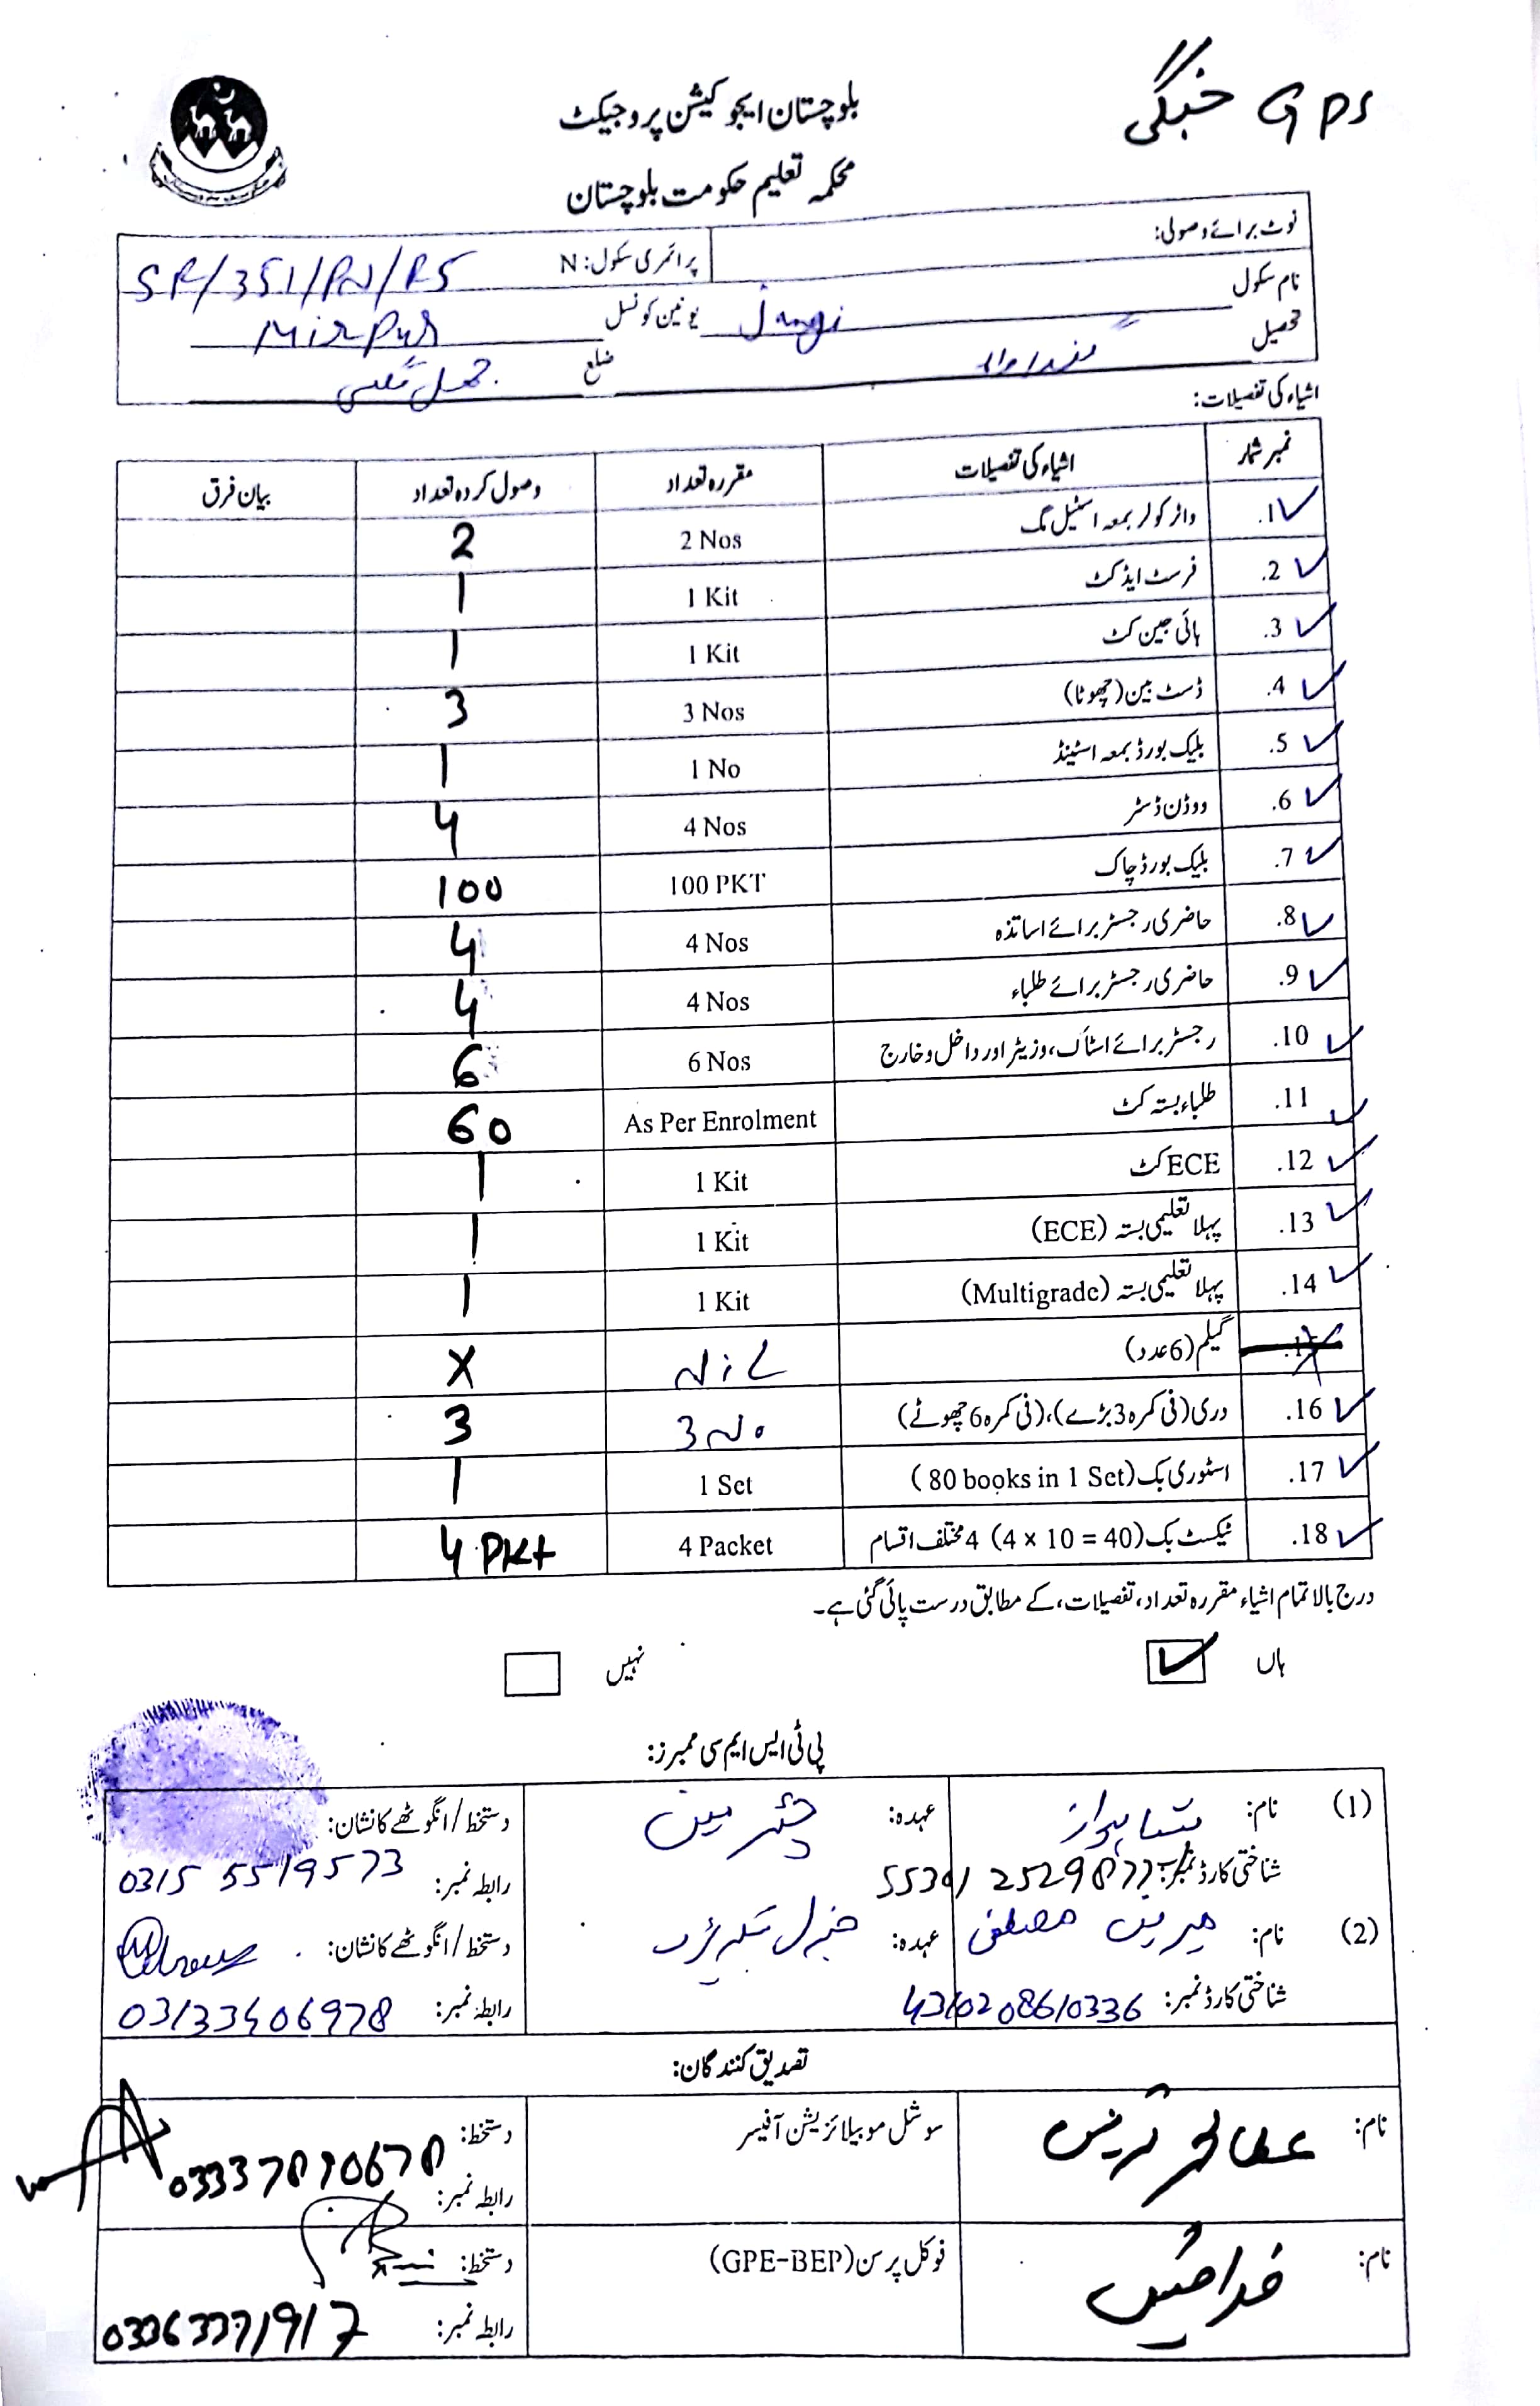 GPS
بلوچستان ایجوکیشن پروجیکٹ
محکمہ تعلیم حکومت بلوچستان
نوٹ برائے وصولی:
نام سکول پرائمری سکول: N
تحصیل یونین کونسل Jangi Mirpur
ضلع
اشیاء کی تفصیلات:
نمبر شمار اشیاء کی تفصیلات مقررہ تعداد وصول کردہ تعداد بیان فرق
1. واٹر کولر بمعہ اسٹیل مگ 2 Nos 2
2. فرسٹ ایڈ کٹ 1 Kit 1
3. ہائی جین کٹ 1 Kit 1
4. ڈسٹ بین (چھوٹا) 3 Nos 3
5. بلیک بورڈ بمعہ اسٹینڈ 1 No 1
6. ووڈن ڈسٹر 4 Nos 4
7. بلیک بورڈ چاک 100 PKT 100
8. حاضری رجسٹر برائے اساتذہ 4 Nos 4
9. حاضری رجسٹر برائے طلباء 4 Nos 4
10. رجسٹر برائے اسٹاک، وزیٹر اور داخل و خارج 6 Nos 6
11. طلباء بستہ کٹ As Per Enrolment 60
12. ECE کٹ 1 Kit 1
13. پہلا تعلیمی بستہ (ECE) 1 Kit 1
14. پہلا تعلیمی بستہ (Multigrade) 1 Kit 1
گیلم (6 عدد) Nil X
16. دری (فی کمرہ 3 بڑے)، (فی کمرہ 6 چھوٹے) 3 No 3
17. اسٹوری بک (80 books in 1 Set) 1 Set 1
18. ٹیکسٹ بک (4 × 10 = 40) 4 مختلف اقسام 4 Packet 4 Pkt
درج بالا تمام اشیاء مقررہ تعداد، تفصیلات، کے مطابق درست پائی گئی ہے۔
ہاں نہیں
پی ٹی ایس ایم سی ممبرز:
(1) نام: عہدہ: چئرمین دستخط/انگوٹھے کا نشان:
شناختی کارڈ نمبر: رابطہ نمبر: 0315 5519573
(2) نام: مصطفی عہدہ: جنرل دستخط/انگوٹھے کا نشان:
شناختی کارڈ نمبر: 4310208610336 رابطہ نمبر: 03133406978
تصدیق کنندگان:
نام: سوشل موبیلائزیشن آفیسر دستخط:
رابطہ نمبر:
نام: فوکل پرسن (GPE-BEP) دستخط:
رابطہ نمبر: 03363371917